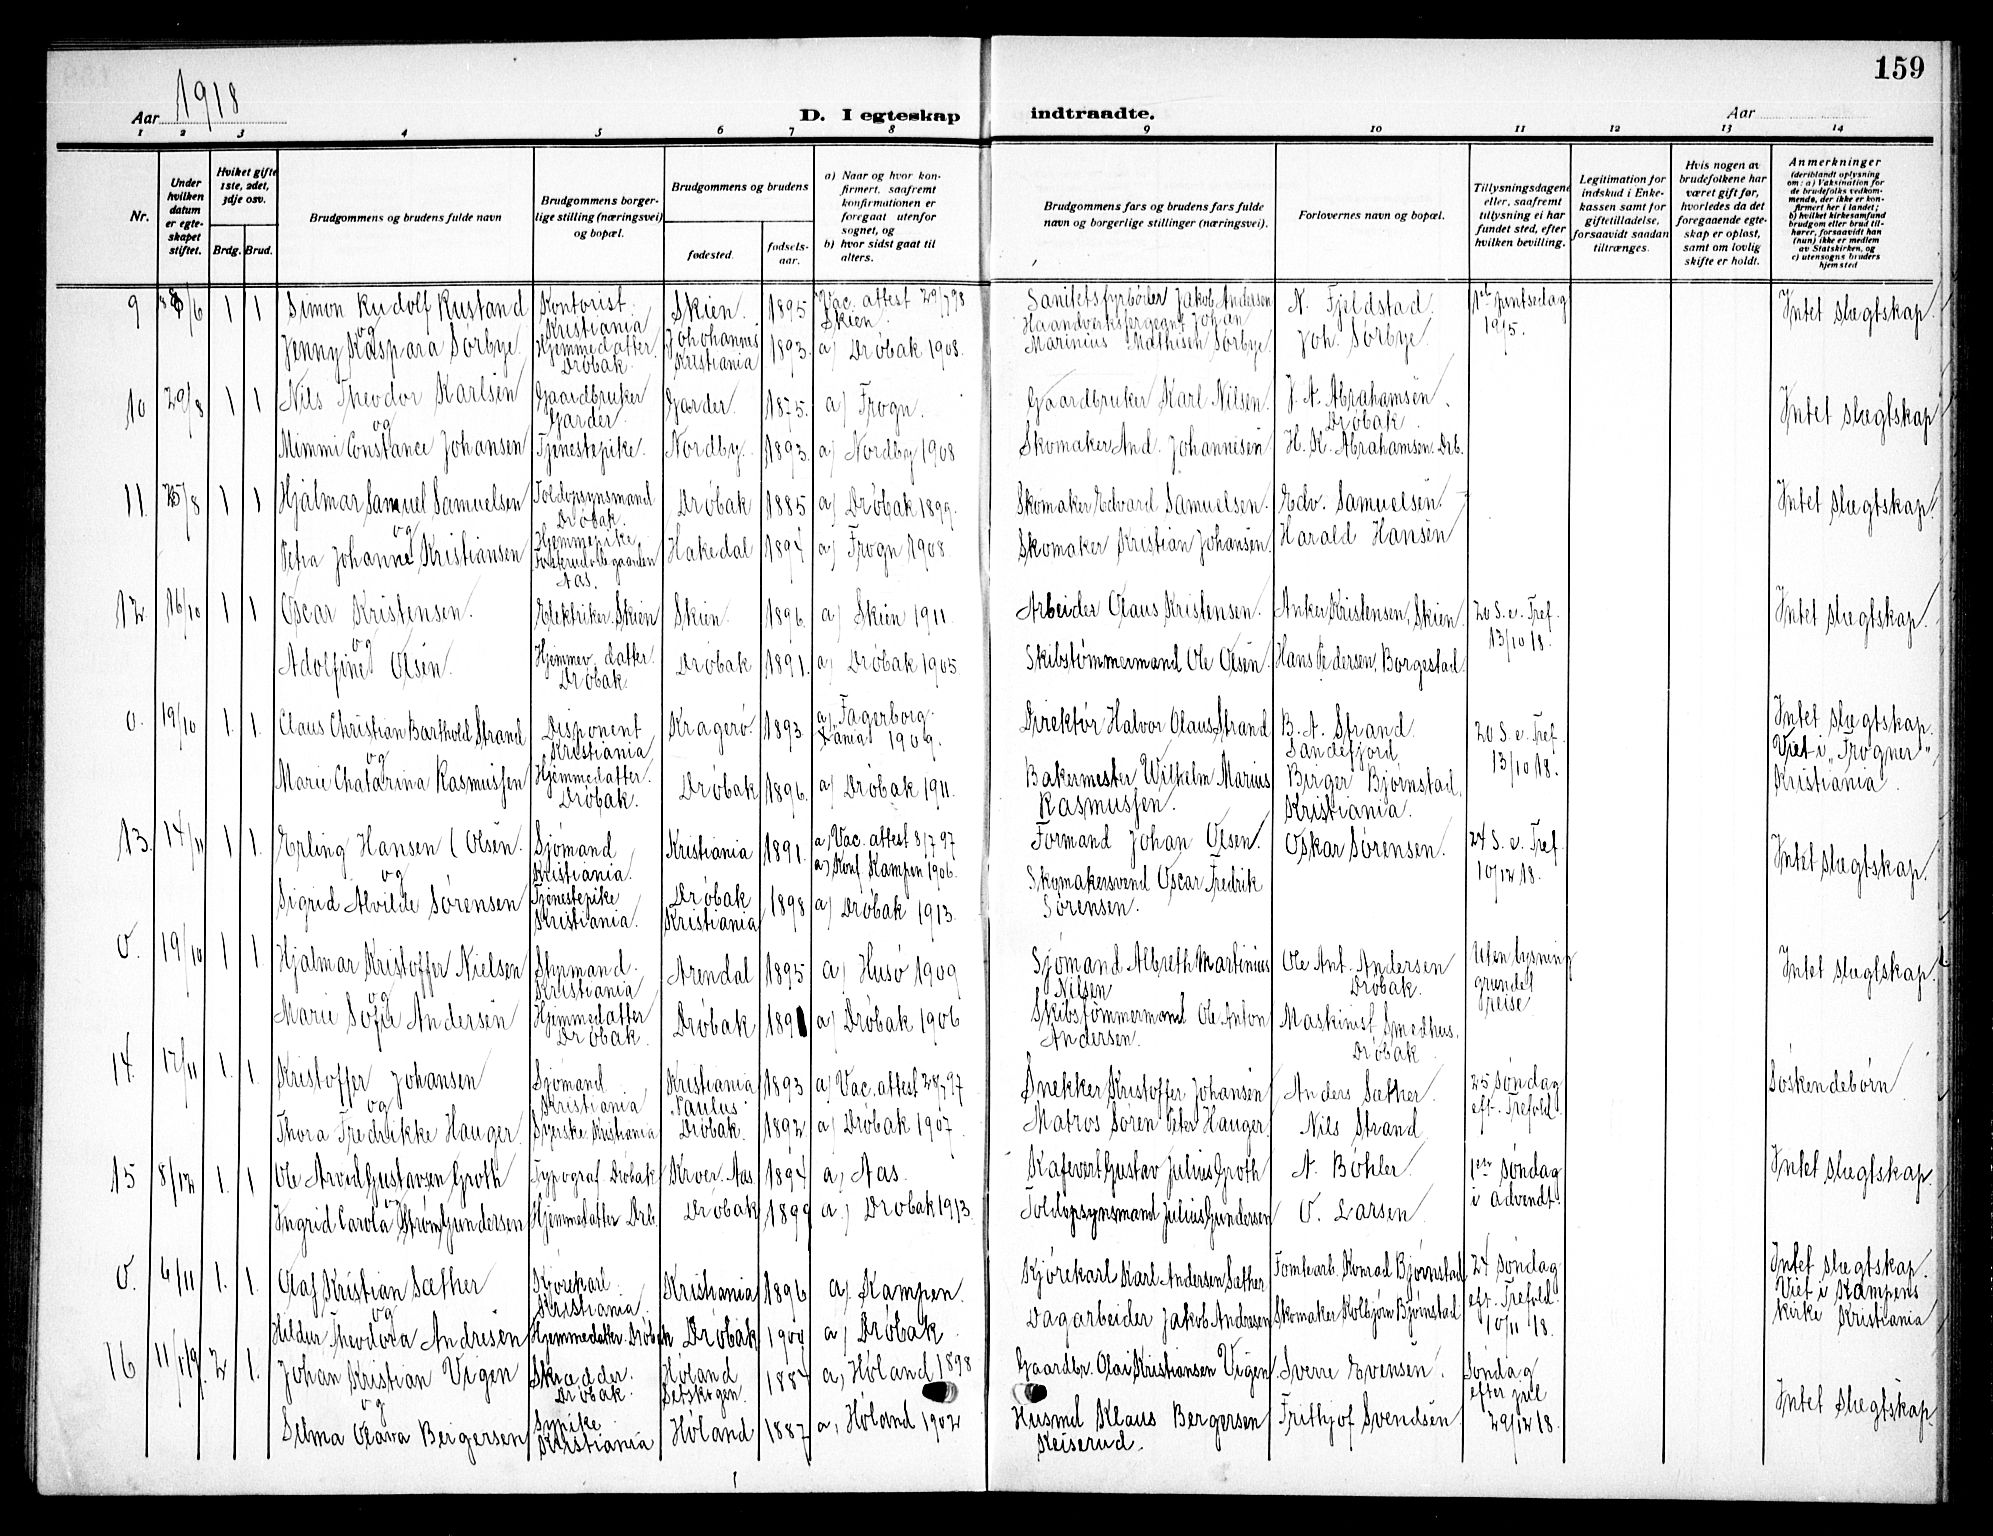 159
Aar 1918
D. I egteskap indtraadte.
Aar
1 2 3 4 5 6 7 8 9 10 11 12 13 14
Nr.
Under hvilken datum er egteskapet stiftet.
Hvilket gifte 1ste, 2det, 3dje osv.
Brdg. Brud.
Brudgommens og brudens fulde navn
Brudgommens og brudens borgerlige stilling (næringsvei) og bopæl.
Brudgommens og brudens
fødested. fødselsaar.
a) Naar og hvor konfirmert, saafremt konfirmationen er foregaat utenfor sognet, og
b) hvor sidst gaat til alters.
Brudgommens fars og brudens fars fulde navn og borgerlige stillinger (næringsvei).
Forlovernes navn og bopæl.
Tillysningsdagene eller, saafremt tillysning ei har fundet sted, efter hvilken bevilling.
Legitimation for indskud i Enkekassen samt for giftetilladelse, forsaavidt saadan tiltrænges.
Hvis nogen av brudefolkene har været gift før, hvorledes da det foregaaende egteskap er opløst, samt om lovlig skifte er holdt.
Anmerkninger (deriblandt oplysning om: a) Vaksination for de brudefolks vedkommende, der ikke er konfirmert her i landet; b) hvilket kirkesamfund brudgom eller brud tilhører, forsaavidt han (hun) ikke er medlem av Statskirken, og c) utensogns bruders hjemsted
9 8/6 1 1 Simon Rudolf Rustand Kontorist Kristiania Skien. 1895 Vac. attest 29/7 98 Skien. Sanitetsfyrbøder Jakob Andersen N. Fjeldstad. 1ste pintsedag 19/5. Intet slægtskap.
og
Jenny Kaspara Sørbye. Hjemmedatter. Drøbak. Johohannis Kristiania 1893. a) Drøbak 1908. Haandverksfergent Johan Marinius Mathisen Sørbye. Joh. Sørbye.
10 29/8 1 1 Nils Theodor Karlsen Gaardbruker Garder. Garder. 1875. a) Frogn. Gaardbruker Karl Nilsen. J. A. Abrahamsen. Drøbak Intet slægtskap
og
Mimmi Constance Johansen Tjenestepike. Nordby. 1893. a) Nordby 1908 Skomaker And. Johannesen H. K. Abrahamsen. Drb.
11. 25/8 1 1 Hjalmar Samuel Samuelsen Toldopsynsmand Drøbak. Drøbak 1885 a) Drøbak 1899. Skomaker Edvard Samuelsen. Edv. Samuelsen. Intet slægtskap.
og
Petra Johanne Kristiansen Hjemmepike Aas. Hakedal 1894 a) Frogn 1908. Skomaker Kristian Johansen. Harald Hansen
12 16/10 1 1 Oscar Kristensen. Elektriker. Skien Skien. 1896. a) Skien 1911. Arbeider Olaus Kristensen. Anker Kristensen, Skien 20 S. e. Tref. 13/10 18. Intet slægtskap.
og
Adolfine Olsen. Hjemmev. datter. Drøbak. Drøbak 1891. a) Drøbak 1905 Skibstømmermand Ole Olsen Hans Pedersen, Borgestad
0. 19/10 1. 1. Claus Christian Barthold Strand Disponent Kristiania Kragerø. 1893. a) Fagerborg. K̄ania 1909. Direktør Halvor Olaus Strand B. A. Strand Sandefjord 20 S. e. Tref. 13/10 18. Intet slægtskap. Viet i „Frogner" Kristiania.
og
Marie Chatarina Rasmussen Hjemmedatter. Drøbak. Drøbak 1896. a) Drøbak 1911. Bakermester Wilhelm Marius Rasmussen. Birger Bjørnstad. Kristiania.
13. 14/11 1 1. Erling Hansen (Olsen. Sjømand Kristiania. Kristiania 1891. a) Vac. attest 8/7 97 a) Konf Kampen 1906. Formand Johan Olsen. Oskar Sørensen. 24 S. e. Tref 10/12 18. Intet slægtskap.
og
Sigrid Alvilde Sørensen Tjenestepike Kristiania. Drøbak Kristiania 1898 a) Drøbak 1913. Skomakersvend Oscar Fredrik Sørensen.
0. 19/10 1 1. Hjalmar Kristoffer Nielsen Styrmand. Kristiania Arendal 1895 a) Husø 1909 Sjømand Albreth Martinius Nilsen Ole Ant. Andersen Drøbak. Uten lysning grundet reise Intet slægtskap.
og
Marie Sofie Andersen Hjemmedatter Drøbak. Drøbak 1891 a) Drøbak 1906 Skibstømmermand Ole Anton Andersen. Maskinist Smedhus. Drøbak
14. 17/11 1. 1. Kristoffer Johansen Sjømand. Kristiania Kristiania Paulus. 1893 a) Vac. attest 28/7 97 Snekker Kristoffer Johansen Anders Sæther. 25 søndag eft. Trefold. Søskendebørn
og
Thora Fredrikke Hauger Syerske Kristiania Drøbak. 1892 a) Drøbak 1907. Matros Søren Peter Hauger. Nils Strand
15 8/12 1. 1 Ole Arvid Gustavsen Groth Typograf Drøbak Kroer. Aas. 1894 a) Aas. Kafevert Gustav Julius Groth A. Bøhler. 1ste søndag i advendt. Intet slægtskap.
og
Ingrid Carola Strøm Gundersen Hjemmedatter Drb. Drøbak 1899 a) Drøbak 1913. Toldopsynsmand Julius Gundersen O. Larsen
0. 6/11 1. 1. Olaf Kristian Sæther Kjørekarl. Kristiania. Kristiania 1896 a) Kampen. Kjørekarl Karl Andersen Sæther Tomtearb. Konrad Bjørnstad 24 søndag eft. Trefold. 10/11 18. Intet slægtskap. Viet i Kampens kirke Kristiania
og
Hildur Theodora Andresen Hjemmedatter. Drøbak Drøbak 1900 a) Drøbak Dagarbeider Jakob Andresen Skomaker Kolbjørn Bjørnstad
16 11/1 19. 2 1. Johan Kristian Vigen Skrædder. Drøbak. Høland Setskogen. 1884 a) Høland 1898 Gaardbr. Olai Kristiansen Vigen. Sverre Evensen. Søndag efter jul 29/12 18. Intet slægtskap
og
Silma Olava Bergersen Sypike Kristiania Høland 1887 a) Høland 1902 Husmd Klaus Bergersen Keiserud. Frithjof Svendsen.